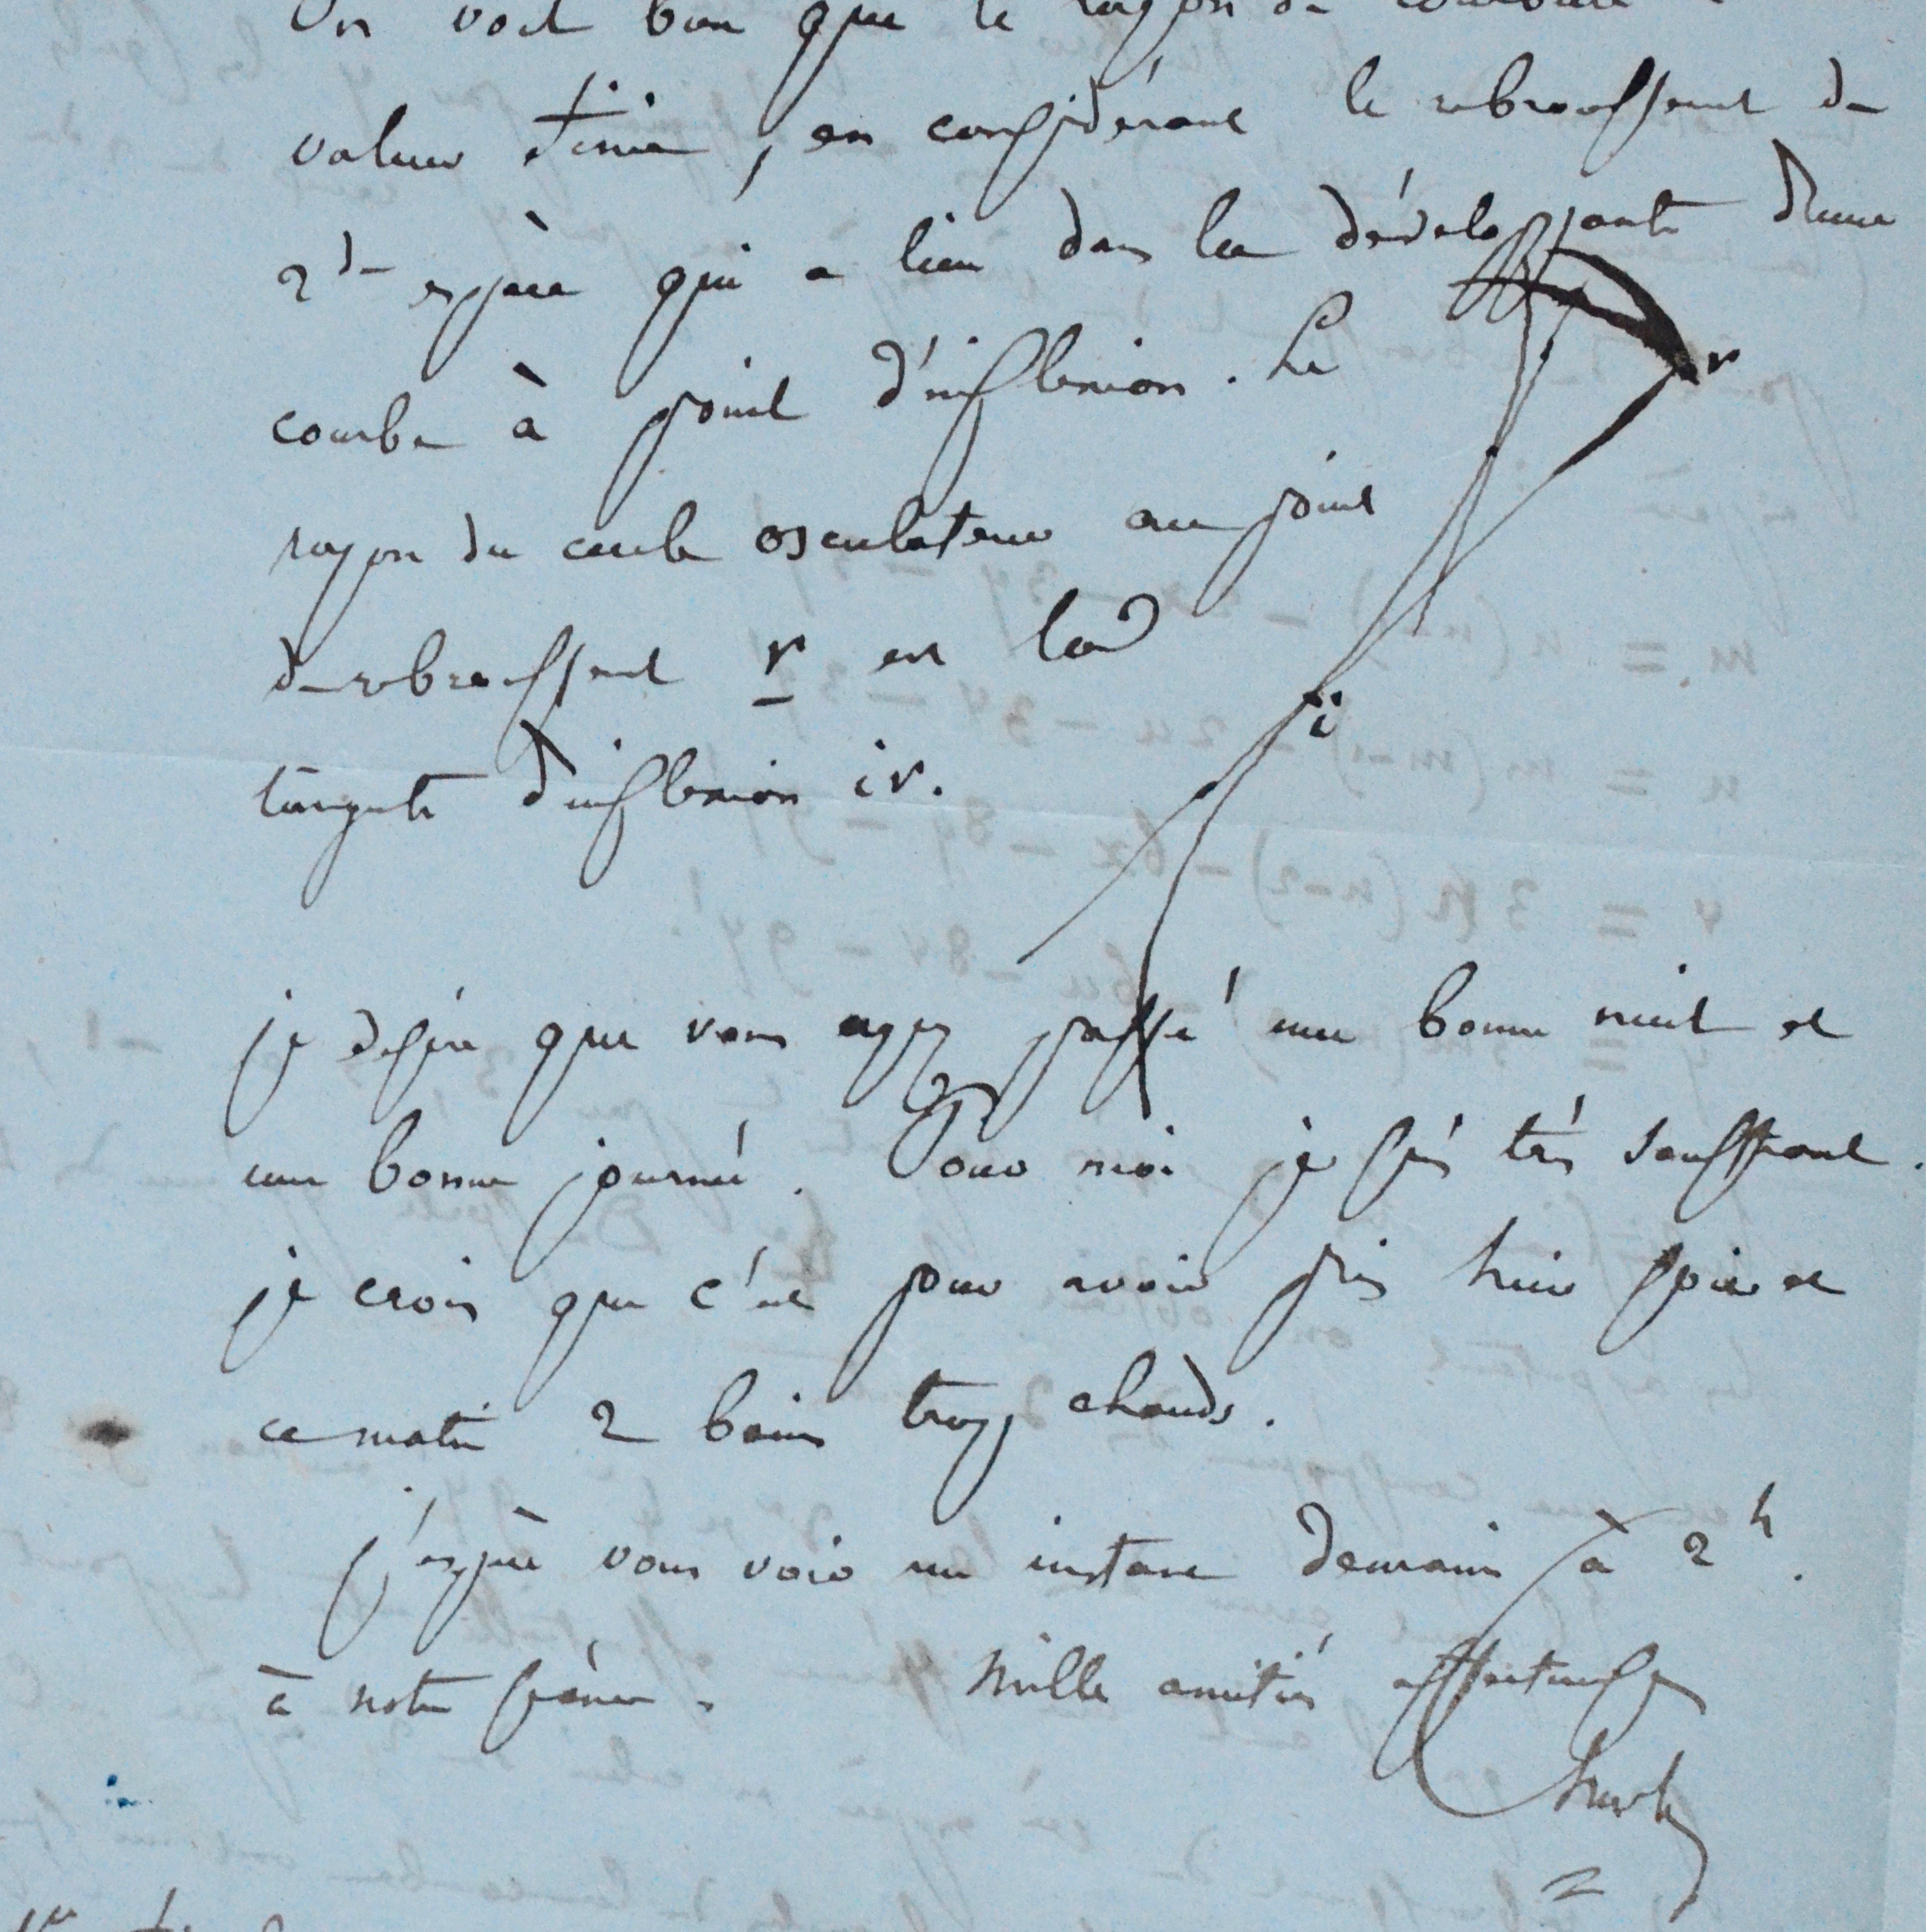 On voit bien que le rayon de courbure
valeur finie, en considérant le rebroussement de
2de espèce qui a lieu dans la développante d'une
courbe à point d'inflexion. Le
rayon du cercle osculateur au point
de rebroussement r est la
tangente d'inflexion ir.
r
i
je desire que vous ayez passé une bonne nuit et
une bonne journée. Pour moi je suis très souffrant.
je crois que c'est pour avoir pris hier soir et
ce matin 2 bains trop chauds.
j'espère vous voir un instant demain à 2h.
à notre séance. Mille amitiés affectueuses
Chasles